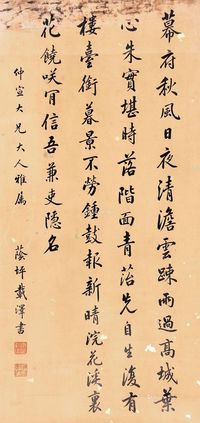 幕府秋風日夜清澹雲踈雨過高城葉
心朱實堪時落階面青菭先自生復有
樓臺銜暮景不勞鍾鼓報新晴浣花溪裏
花饒咲肎信吾兼吏隱名
仲宣大兄大人雅屬
蔭坪載澤書